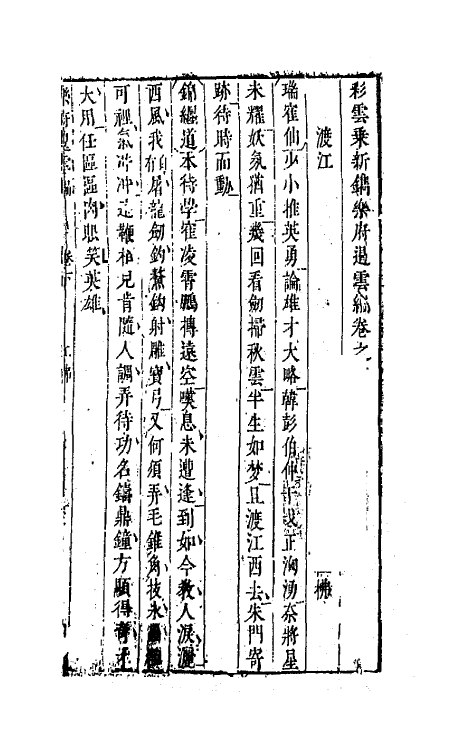 彩雲乘新鐫樂府遏雲編卷之
渡江　　　　拂
瑞雀仙少小推英勇論雄才大略韓彭伯仲干戈正洶湧奈將星
未耀妖氛猶重幾回看劍掃秋雲半生如梦且渡江西去朱門寄
跡待時而動
錦纏道本待學雀凌霄鵬摶遠空嘆息未遭逢到如今教人淚灑
西風我有屠龍劍釣鰲鈎射雕寶弓又何須弄毛錐角技
可裡氣冲冲這鞭和兄肯隨人調弄待功名鑄鼎鐘方顯得奇才
大用任區區肉眼笑英雄